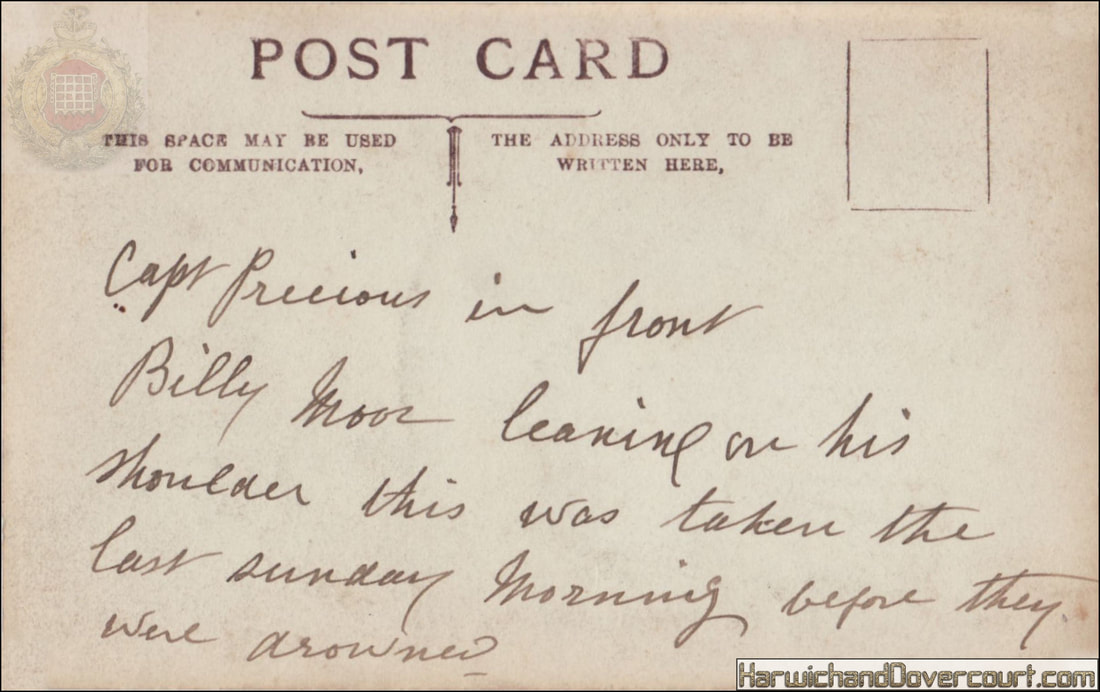 POST CARD
THIS SPACE MAY BE USED
FOR COMMUNICATION,
THE ADDRESS ONLY TO BE
WRITTEN HERE,
Capt Precious in front
Billy Moor leaning on his
shoulder this was taken the
last sunday Morning before they
were drowned
HarwichandDovercourt.com